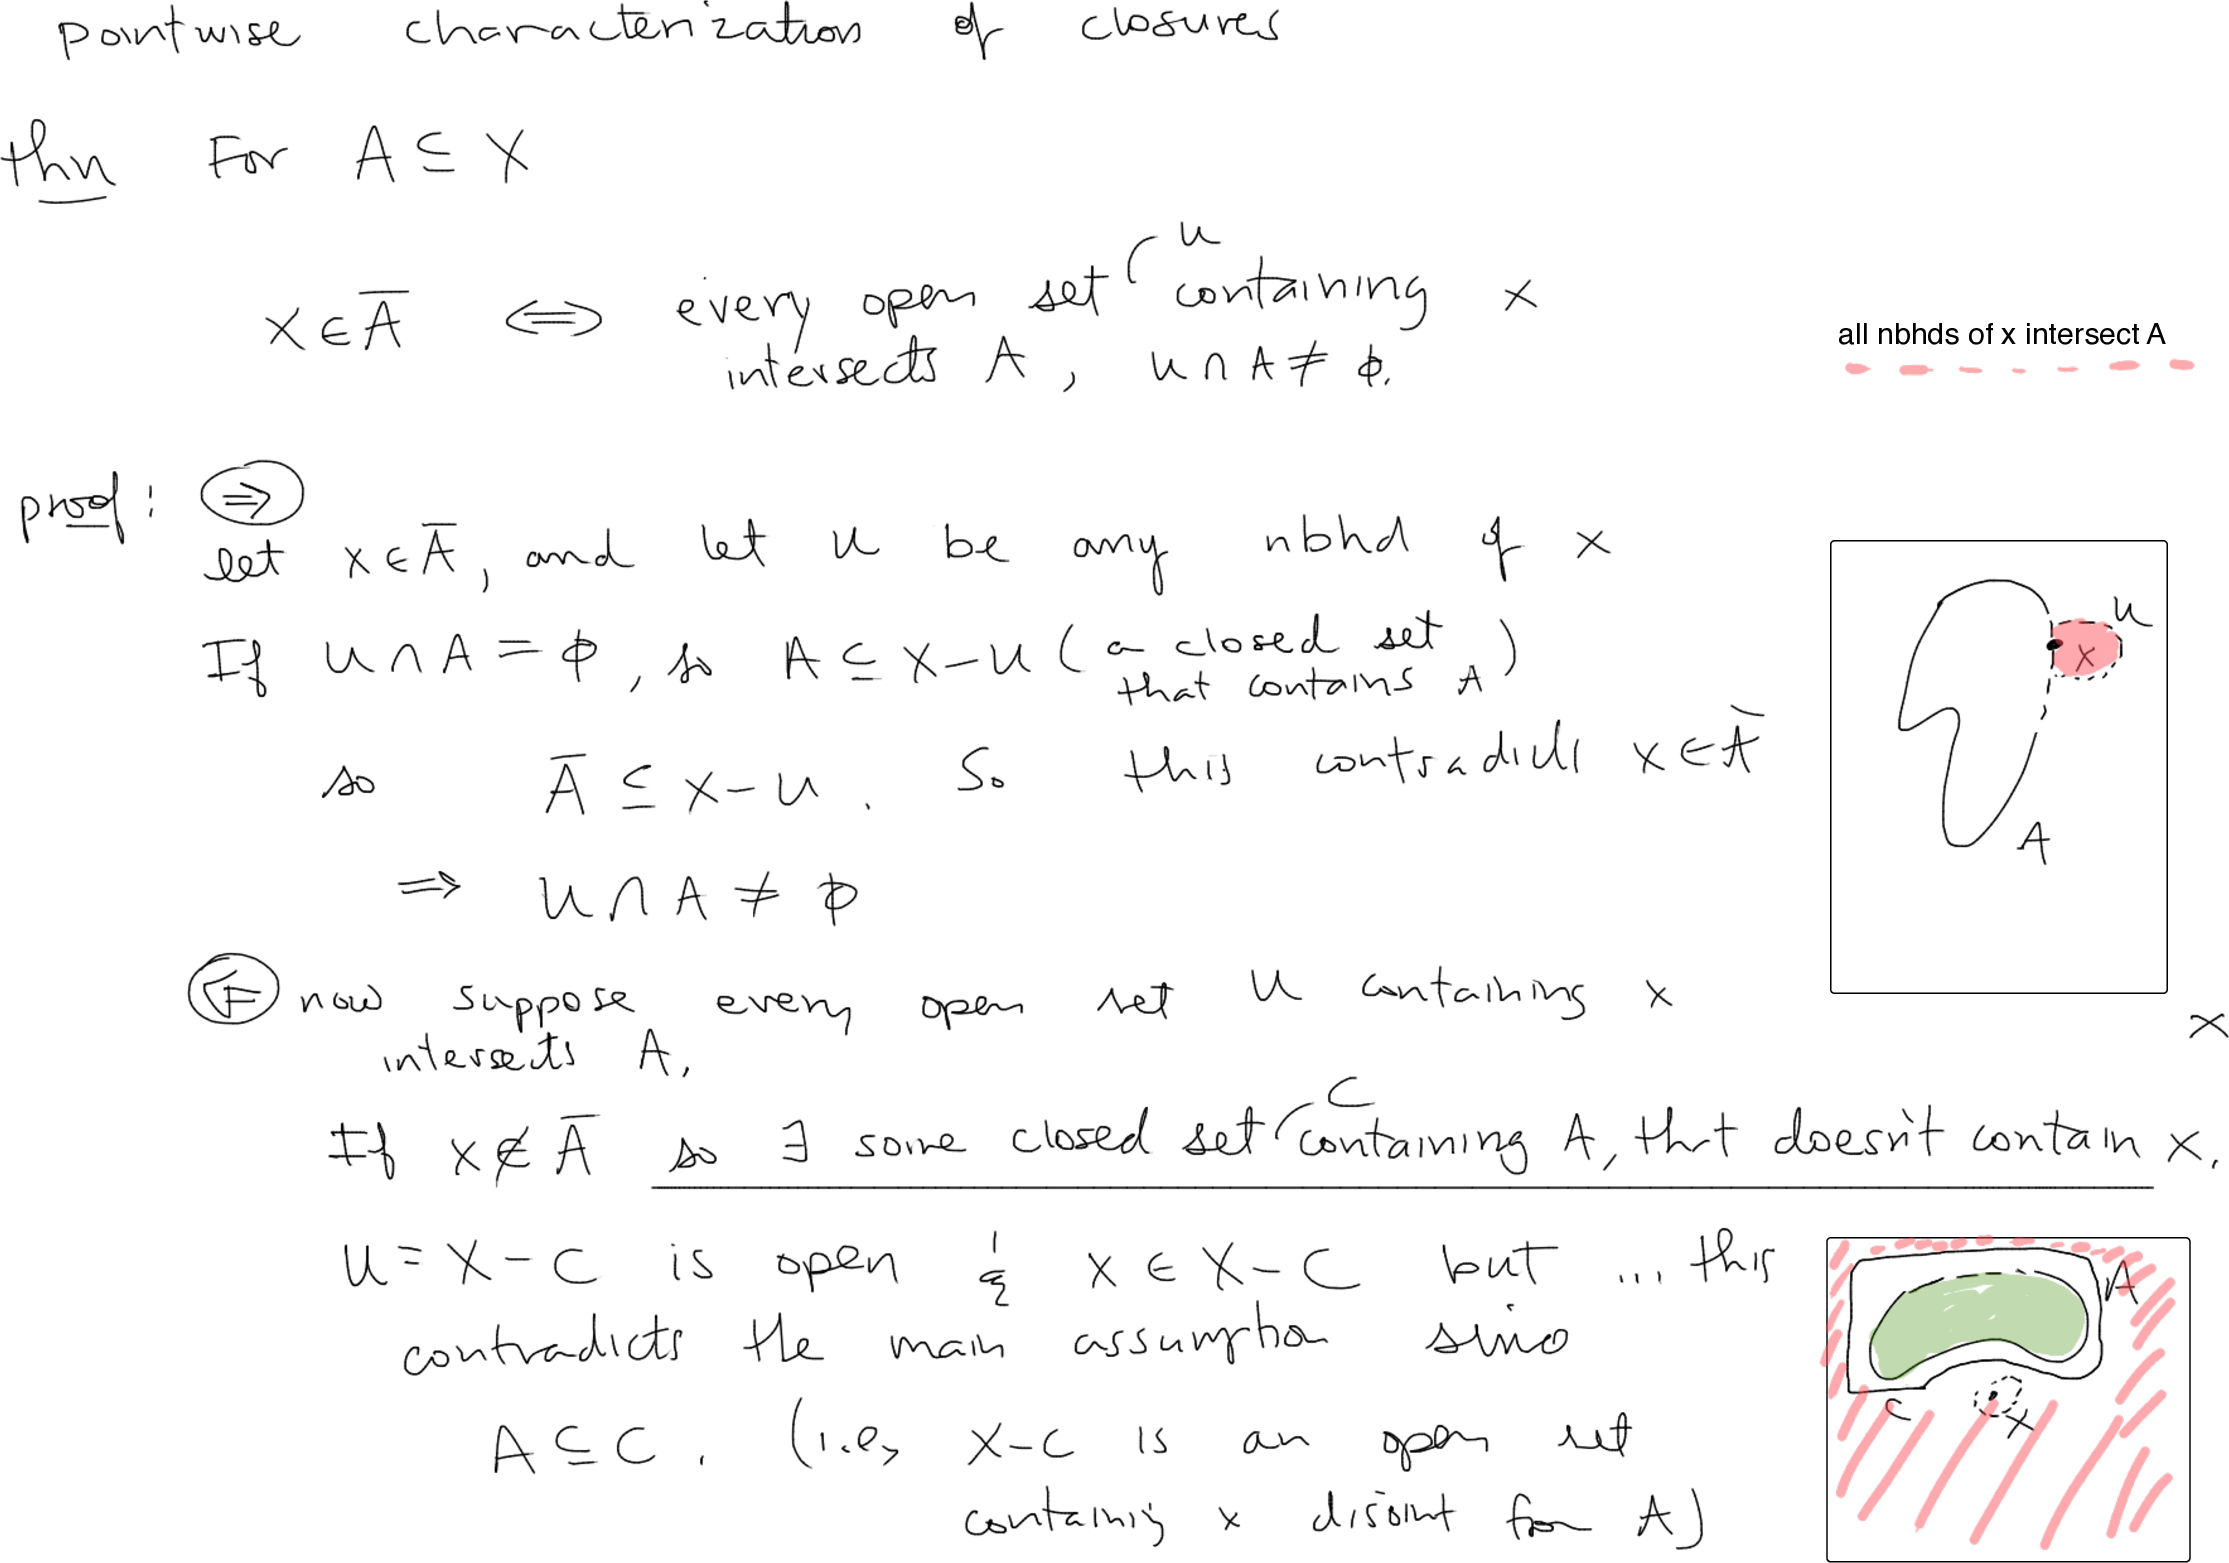 pointwise characterization of closures
thm For A ⊆ X
x ∈ A̅ ⟺ every open set U containing x
intersects A, U ∩ A ≠ ϕ.
all nbhds of x intersect A
proof: ⇒
let x ∈ A̅, and let U be any nbhd of x
If U ∩ A = ϕ, so A ⊆ X − U (a closed set
that contains A)
so A̅ ⊆ X − U. So this contradicts x ∈ A̅
⇒ U ∩ A ≠ ϕ
U
x
A
⇐ now suppose every open set U containing x
x
intersects A.
If x ∉ A̅ so ∃ some closed set C containing A, that doesn't contain x.
U = X − C is open & x ∈ X − C but ... this
contradicts the main assumption since
A ⊆ C. (i.e, X − C is an open set
containing x disjoint from A)
A
C
x